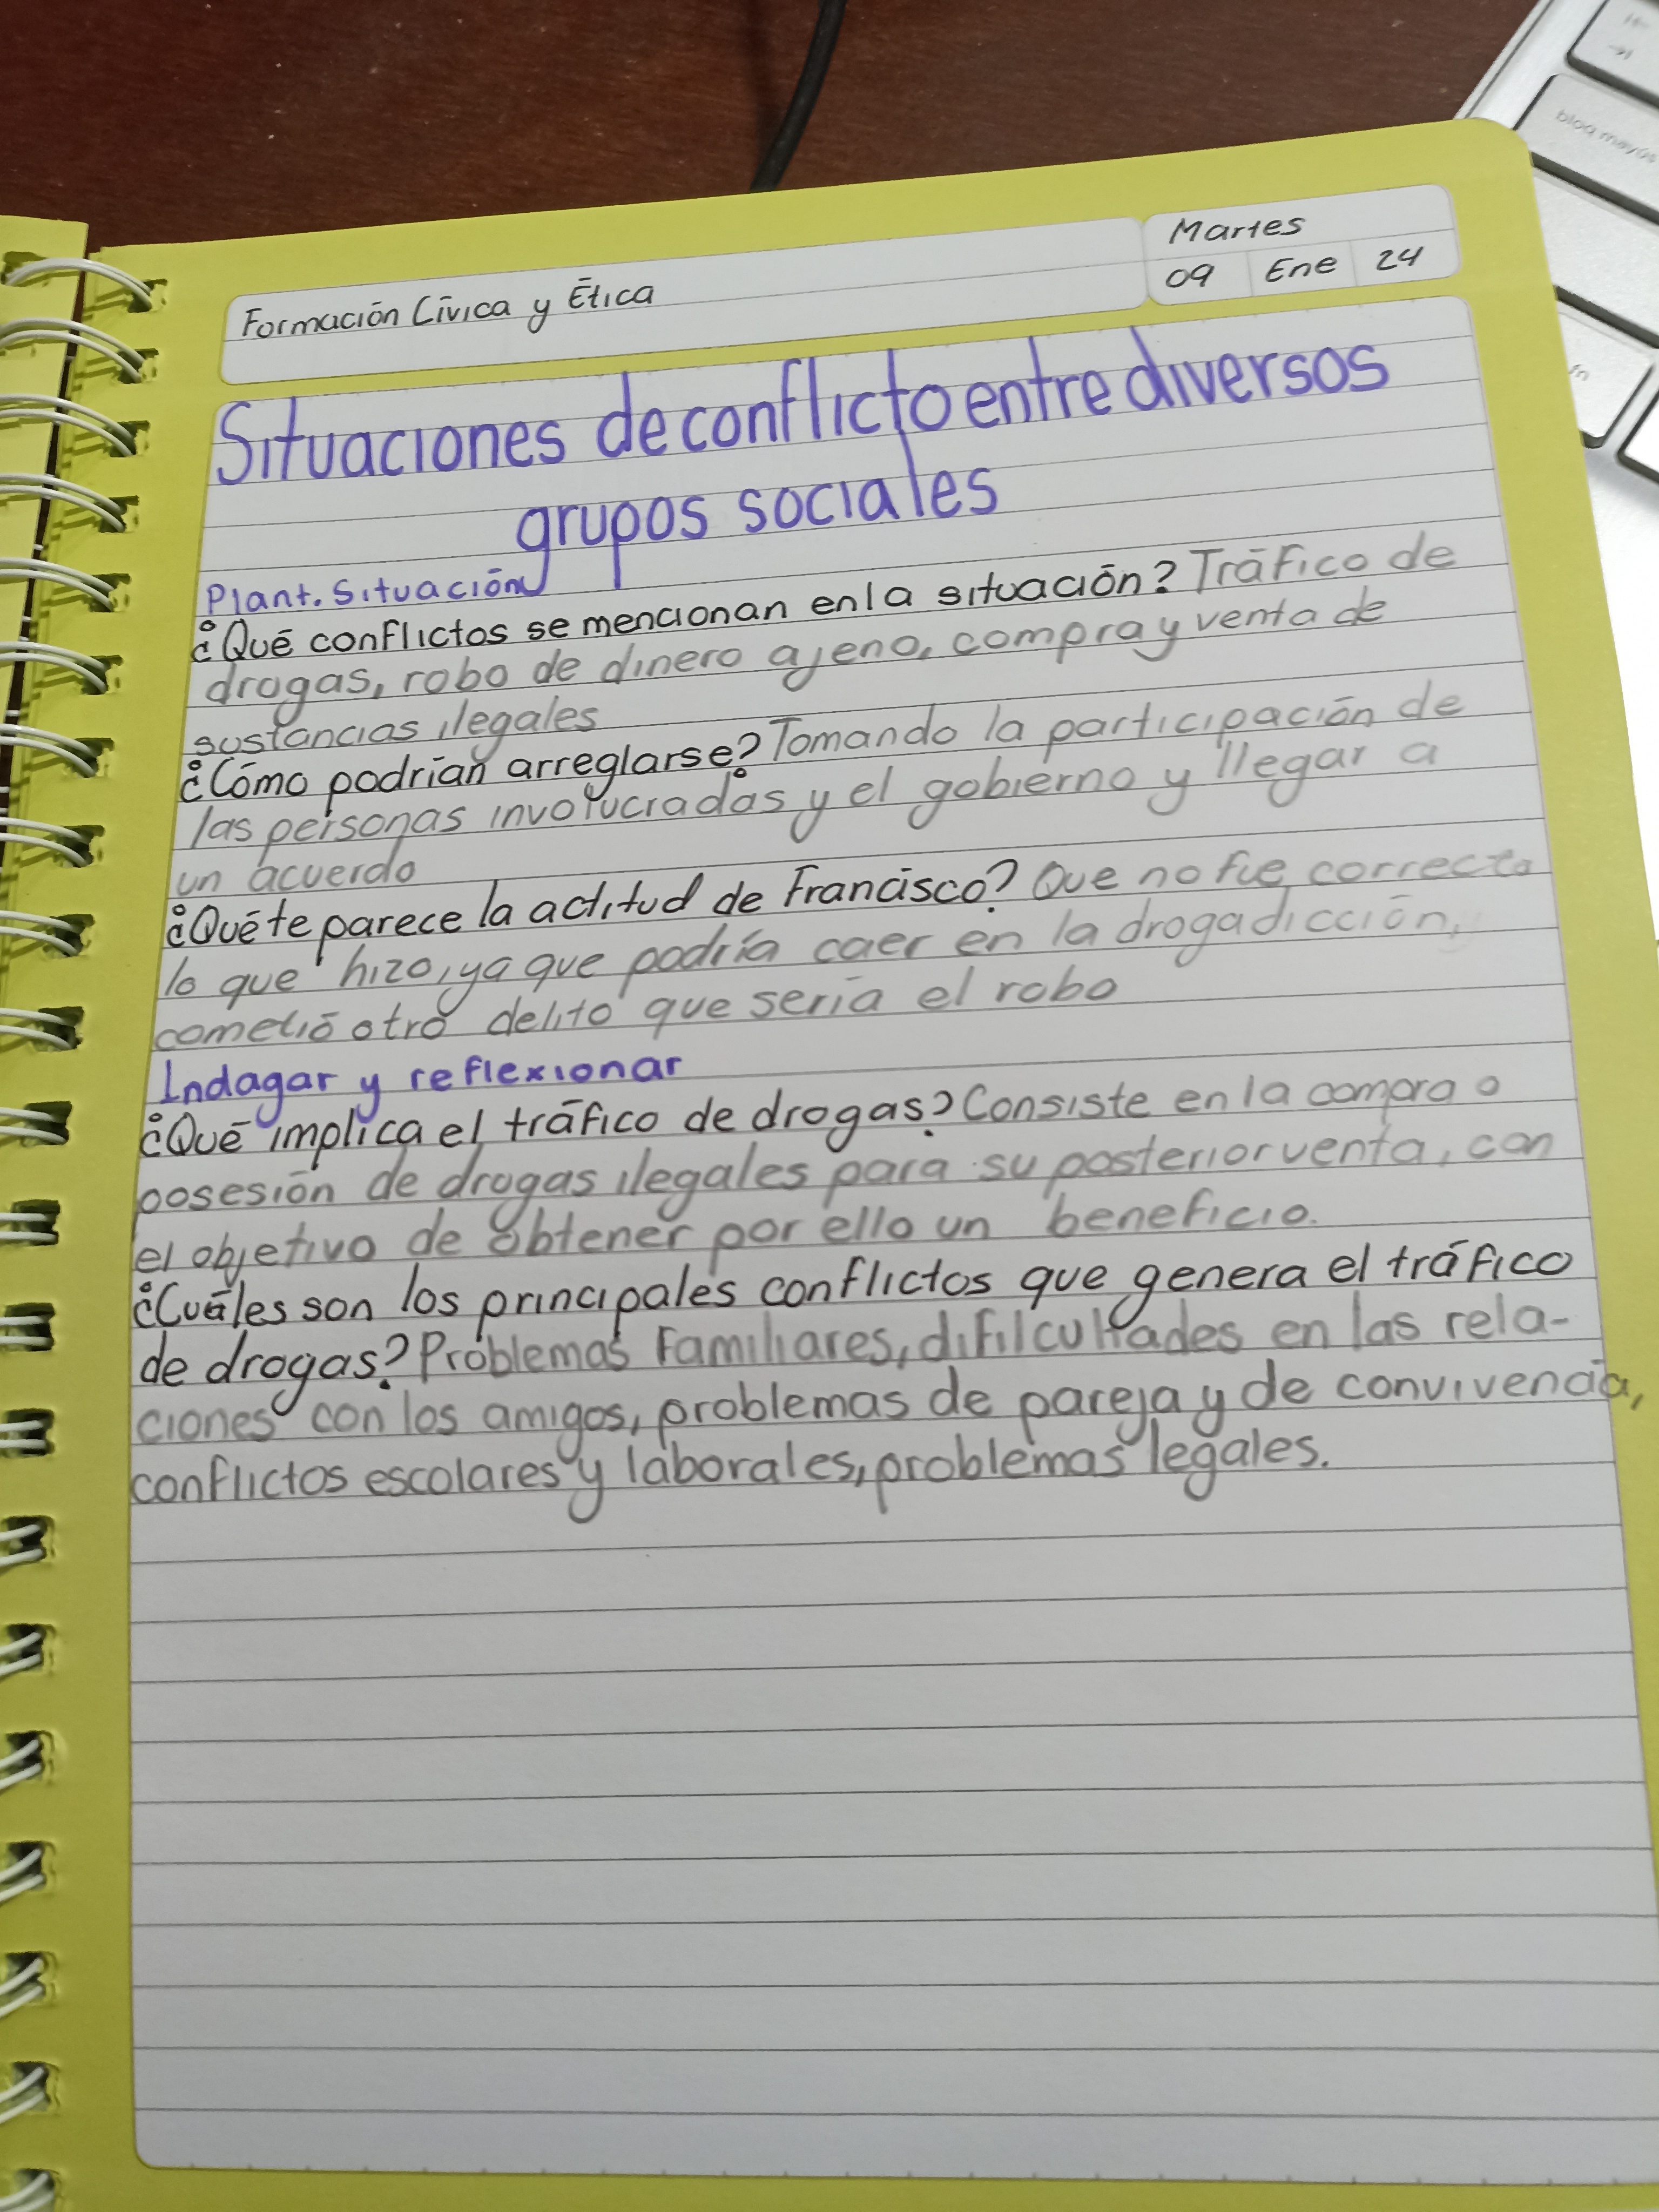 Formación Cívica y Ética
Martes
09 Ene 24
Situaciones de conflicto entre diversos
grupos sociales
Plant. Situación
¿Qué conflictos se mencionan en la situación? Tráfico de
drogas, robo de dinero ajeno, compra y venta de
sustancias ilegales
¿Cómo podrían arreglarse? Tomando la participación de
las personas involucradas y el gobierno y llegar a
un acuerdo
¿Qué te parece la actitud de Francisco? Que no fue correcto
lo que hizo, ya que podría caer en la drogadicción,
cometió otro delito que seria el robo
Indagar y reflexionar
¿Qué implica el tráfico de drogas? Consiste en la compra o
posesión de drogas ilegales para su posterior venta, con
el objetivo de obtener por ello un beneficio.
¿Cuáles son los principales conflictos que genera el tráfico
de drogas? Problemas familiares, difilcultades en las rela-
ciones con los amigos, problemas de pareja y de convivencia,
conflictos escolares y laborales, problemas legales.
bloq mayús
fn